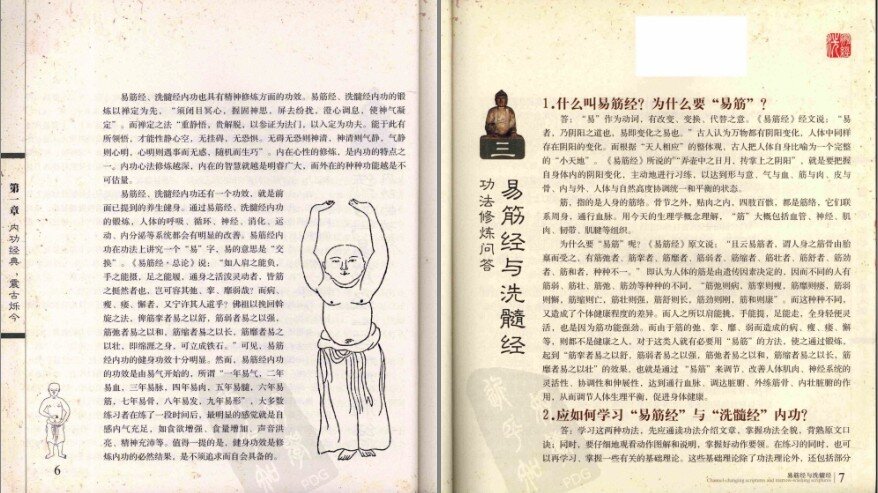 易筋经、洗髓经内功也具有精神修炼方面的功效。易筋经、洗髓经内功的锻
炼以禅定为先，“须闭目冥心，握固神思，屏去纷扰，澄心调息，使神气凝
定”。而禅定之法“重静悟，贵解脱，以参证为法门，以入定为功夫。能于此有
所领悟，才能性静心空，无挂碍，无恐惧。无得无恐则神清，神清则气静，气静
则心明，心明则遇事而无惑，随机而生巧”。内在心性的修炼，是内功的特点之
一。内功心法修炼越深，内在的智慧就越是明睿广大，而外在的种种功能越是不
可估量。
易筋经、洗髓经内功还有一个功效，就是前
面已提到的养生健身。通过易筋经、洗髓经内功
的锻炼，人体的呼吸、循环、神经、消化、运
动、内分泌等系统都会有明显的改善。易筋经内
功在功法上讲究一个“易”字，易的意思是“交
换”。《易筋经·总论》说：“如人肩之能负，
手之能摄，足之能履，通身之活泼灵动者，皆筋
之挺然者也，岂可容其弛、挛、靡弱哉？而病、
瘘、痿、懈者，又宁许其人道乎？佛祖以挽回斡
旋之法，俾筋挛者易之以舒，筋弱者易之以强，
筋弛者易之以和，筋缩者易之以长，筋靡者易之
以壮，即绵涯之身，可立成铁石。”可见，易筋经
内功的健身功效十分明显。然而，易筋经内功
的功效是由易气开始的，所谓“一年易气，二年
易血，三年易脉，四年易肉，五年易髓，六年易
筋，七年易骨，八年易发，九年易形”，大多数
练习者在练了一段时间后，最明显的感觉就是自
感内气充足，如食欲增强、食量增加、声音洪
亮、精神充沛等。值得一提的是，健身功效是修
炼内功的必然结果，是不须追求而自会具备的。
第一章 内功经典，震古烁今
6
三
易筋经与洗髓经
功法修炼问答
1.什么叫易筋经？为什么要“易筋”？
答：“易”作为动词，有改变、变换、代替之意。《易筋经》经文说：“易
者，乃阴阳之道也，易即变化之易也。”古人认为万物都有阴阳变化，人体中同样
存在阴阳的变化。而根据“天人相应”的整体观，古人把人体自身比喻为一个完整
的“小天地”。《易筋经》所说的“弄壶中之日月，抟掌上之阴阳”，就是要把握
自身体内的阴阳变化，主动地进行习练，以达到形与意、气与血、筋与肉、皮与
骨、内与外、人体与自然高度协调统一和平衡的状态。
筋，指的是人身的筋络。骨节之外，贴肉之内，四肢百骸，都是筋络，它们联
系周身，通行血脉。用今天的生理学概念理解，“筋”大概包括血管、神经、肌
肉、韧带、肌腱等组织。
为什么要“易筋”呢？《易筋经》原文说：“且云易筋者，谓人身之筋骨由胎
禀而受之，有筋弛者、筋挛者、筋靡者、筋弱者、筋缩者、筋壮者、筋舒者、筋劲
者、筋和者，种种不一。”即认为人体的筋是由遗传因素决定的，因而不同的人有
筋弱、筋壮、筋弛、筋劲等种种的不同，“筋弛则病，筋挛则瘦，筋靡则痿，筋弱
则懈，筋缩则亡，筋壮则强，筋舒则长，筋劲则刚，筋和则康”。而这种种不同，
又造成了个体健康程度的差异。而人之所以肩能挑，手能提，足能走，全身轻便灵
活，也是因为筋功能强劲。而由于筋的弛、挛、靡、弱而造成的病、瘦、痿、懈
等，则都不是健康之人。对于这类人就有必要用“易筋”的方法，使之通过锻炼，
起到“筋挛者易之以舒，筋弱者易之以强，筋弛者易之以和，筋缩者易之以长，筋
靡者易之以壮”的效果。也就是通过“易筋”来调节、改善人体肌肉、神经系统的
灵活性、协调性和伸展性，达到通行血脉、调达脏腑、外练筋骨、内壮脏腑的作
用，从而调节人体生理平衡，促进身体健康。
2.应如何学习“易筋经”与“洗髓经”内功？
答：学习这两种功法，先应通读功法介绍文章，掌握功法全貌，背熟原文口
诀；同时，要仔细地观看动作图解和说明，掌握好动作要领。在练习的同时，也可
以再学习、掌握一些有关的基础理论。这些基础理论除了功法理论外，还包括部分
易筋经与洗髓经
Channel-changing scriptures and marrow-washing scriptures
7